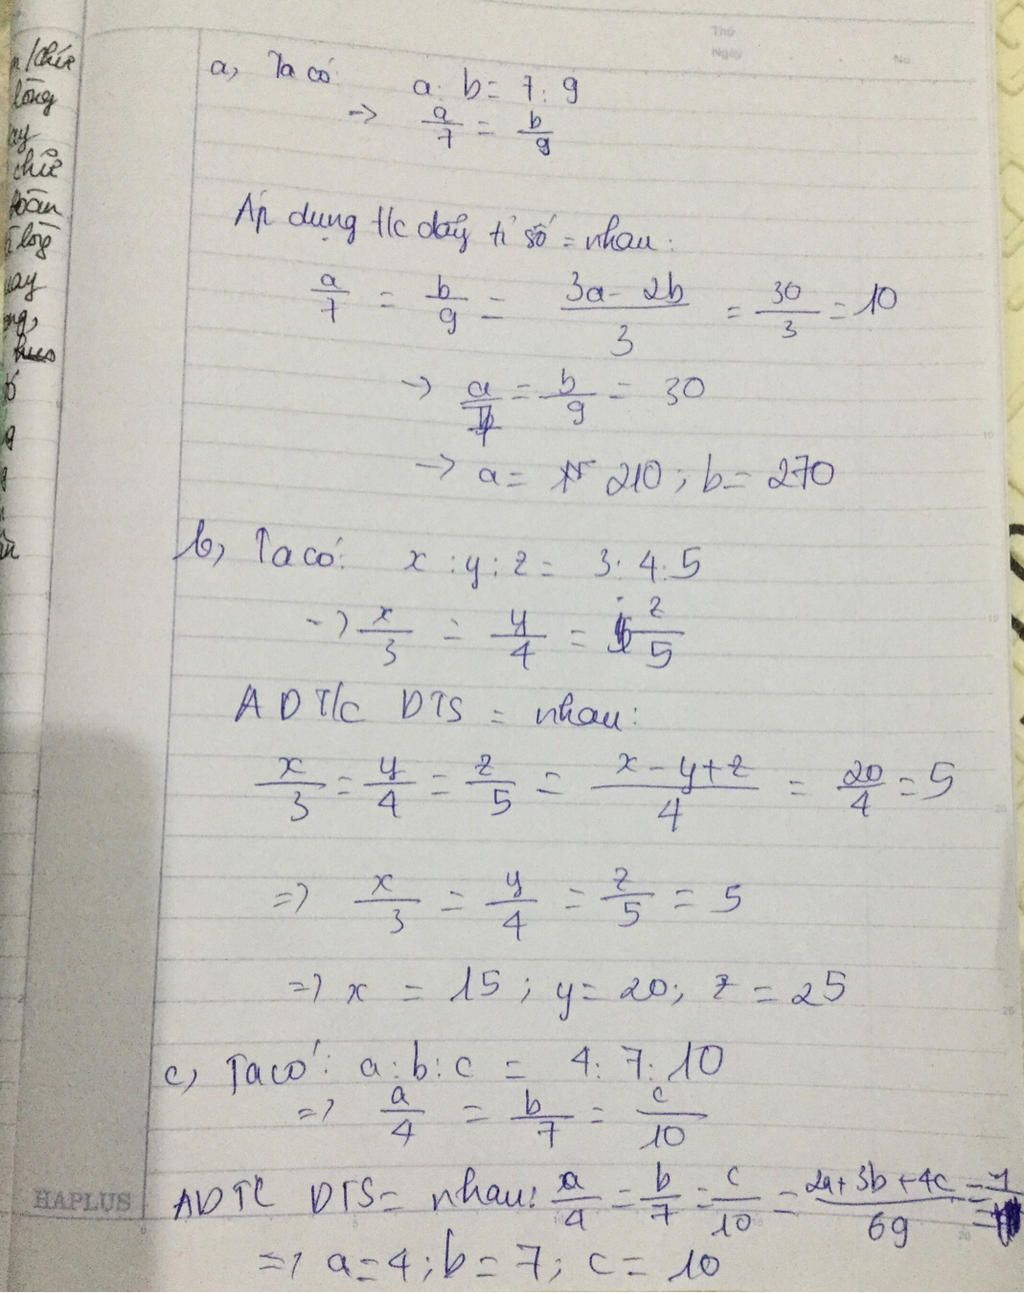 Thứ
Ngày
No
a, Ta có: a: b = 7: 9
-> a/7 = b/9
Áp dụng t/c dãy tỉ số = nhau:
a/7 = b/9 = (3a - 2b)/3 = 30/3 = 10
-> a/7 = b/9 = 30
-> a = 210; b = 270
b, Ta có: x : y : z = 3: 4: 5
-> x/3 = y/4 = z/5
ADT/c DTS = nhau:
x/3 = y/4 = z/5 = (x - y + z)/4 = 20/4 = 5
=> x/3 = y/4 = z/5 = 5
=> x = 15; y = 20; z = 25
c, Ta có: a : b : c = 4: 7: 10
=> a/4 = b/7 = c/10
ADTC DTS = nhau: a/4 = b/7 = c/10 = (2a + 3b + 4c)/69 = 1
=> a = 4; b = 7; c = 10
HAPLUS